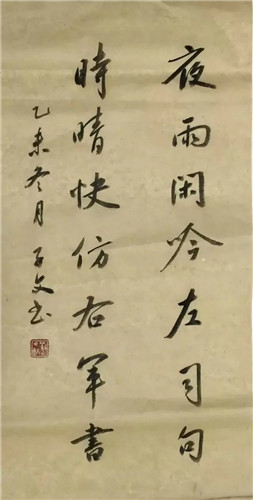 夜雨閑吟左司句
時晴快仿右軍書
乙未冬月 子文书